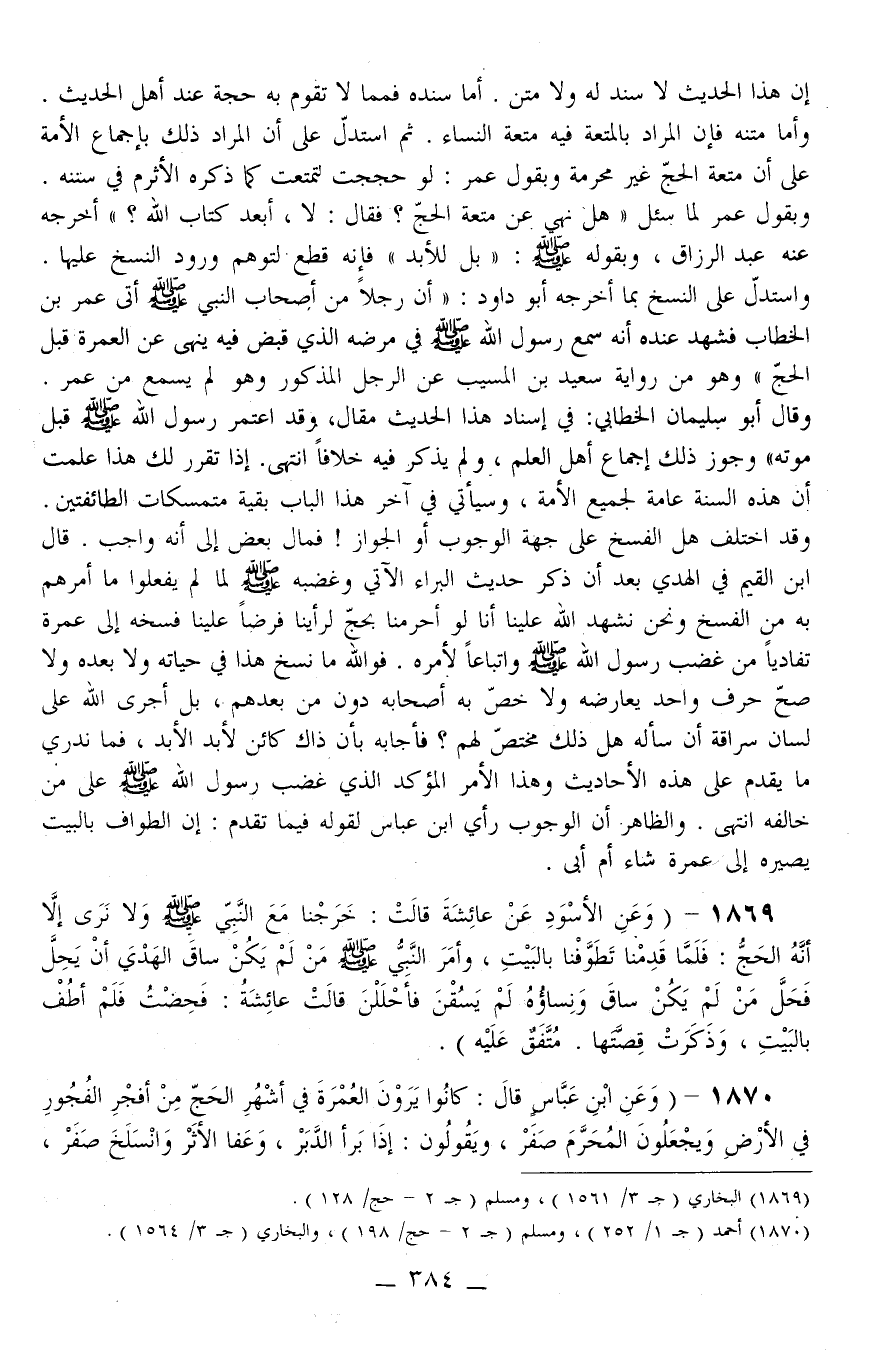 إن هذا الحديث لا سند له ولا متن . أما سنده فمما لا تقوم به حجة عند أهل الحديث .
وأما متنه فإن المراد بالمتعة فيه متعة النساء . ثم استدلّ على أن المراد ذلك بإجماع الأمة
على أن متعة الحجّ غير محرمة وبقول عمر : لو حججت لتمتعت كما ذكره الأثرم في سننه .
وبقول عمر لما سئل « هل نهي عن متعة الحجّ ؟ فقال : لا ، أبعد كتاب الله ؟ » أخرجه
عنه عبد الرزاق ، وبقوله ﷺ : « بل للأبد » فإنه قطع لتوهم ورود النسخ عليها .
واستدلّ على النسخ بما أخرجه أبو داود : « أن رجلاً من أصحاب النبي ﷺ أتى عمر بن
الخطاب فشهد عنده أنه سمع رسول الله ﷺ في مرضه الذي قبض فيه ينهى عن العمرة قبل
الحجّ » وهو من رواية سعيد بن المسيب عن الرجل المذكور وهو لم يسمع من عمر .
وقال أبو سليمان الخطابي: في إسناد هذا الحديث مقال، وقد اعتمر رسول الله ﷺ قبل
موته» وجوز ذلك إجماع أهل العلم ، ولم يذكر فيه خلافاً انتهى. إذا تقرر لك هذا علمت
أن هذه السنة عامة لجميع الأمة ، وسيأتي في آخر هذا الباب بقية متمسكات الطائفتين .
وقد اختلف هل الفسخ على جهة الوجوب أو الجواز ! فمال بعض إلى أنه واجب . قال
ابن القيم في الهدي بعد أن ذكر حديث البراء الآتي وغضبه ﷺ لما لم يفعلوا ما أمرهم
به من الفسخ ونحن نشهد الله علينا أنا لو أحرمنا بحجّ لرأينا فرضاً علينا فسخه إلى عمرة
تفادياً من غضب رسول الله ﷺ واتباعاً لأمره . فوالله ما نسخ هذا في حياته ولا بعده ولا
صحّ حرف واحد يعارضه ولا خصّ به أصحابه دون من بعدهم ، بل أجرى الله على
لسان سراقة أن سأله هل ذلك مختصّ لهم ؟ فأجابه بأن ذاك كائن لأبد الأبد ، فما ندري
ما يقدم على هذه الأحاديث وهذا الأمر المؤكد الذي غضب رسول الله ﷺ على من
خالفه انتهى . والظاهر أن الوجوب رأي ابن عباس لقوله فيما تقدم : إن الطواف بالبيت
يصيره إلى عمرة شاء أم أبى .
١٨٦٩ – ( وَعَنِ الأسْوَدِ عَنْ عائِشَةَ قالَتْ : خَرَجْنا مَعَ النَّبِيّ ﷺ وَلا نَرَى إلَّا
أنَّهُ الحَجُّ : فَلَمَّا قَدِمْنا تَطَوَّفْنا بالبَيْتِ ، وأمَرَ النَّبِيُّ ﷺ مَنْ لَمْ يَكُنْ ساقَ الهَدْيَ أنْ يَحِلَّ
فَحَلَّ مَنْ لَمْ يَكُنْ ساقَ وَنِساؤُهُ لَمْ يَسُقْنَ فأحْلَلْنَ قالَتْ عائِشَةُ : فَحِضْتُ فَلَمْ أطُفْ
بالبَيْتِ ، وَذَكَرَتْ قِصَّتَها . مُتَّفَقٌ عَلَيْه ) .
١٨٧٠ – ( وَعَنِ ابْنِ عَبَّاسٍ قالَ : كانُوا يَرَوْنَ العُمْرَةَ في أشْهُرِ الحَجّ مِنْ أفجْرِ الفُجُورِ
في الأرْضِ وَيجْعَلُونَ المُحَرَّمَ صَفَرْ ، ويَقُولُون : إذَا بَرأ الدَّبَرْ ، وَعَفا الأثَرْ وَانْسلَخَ صَفَرْ ،
(١٨٦٩) البخاري ( جـ ٣/ ١٥٦١ ) ، ومسلم ( جـ ٢ – حج/ ١٢٨ ) .
(١٨٧٠) أحمد ( جـ ١/ ٢٥٢ ) ، ومسلم ( جـ ٢ – حج/ ١٩٨ ) ، والبخاري ( جـ ٣/ ١٥٦٤ ) .
ــ ٣٨٤ ــ